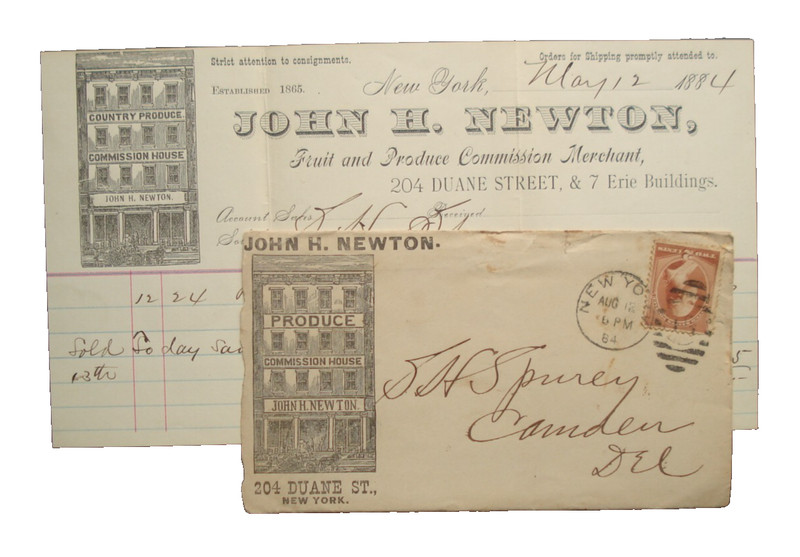 Strict attention to consignments.
Orders for Shipping promptly attended to.
ESTABLISHED 1865.
New York, May 12 1884
JOHN H. NEWTON,
Fruit and Produce Commission Merchant,
204 DUANE STREET, & 7 Erie Buildings.
COUNTRY PRODUCE
COMMISSION HOUSE
JOHN H. NEWTON.
Account Sales
Received
12 24
Sold to day
13th
JOHN H. NEWTON.
PRODUCE
COMMISSION HOUSE
JOHN H. NEWTON.
204 DUANE ST.,
NEW YORK.
NEW YO
AUG 12
6 PM
84
S H Spurey
Camden
Del